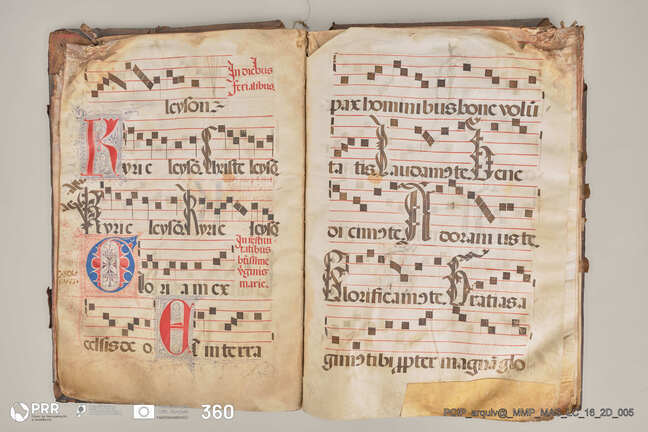 In diebus
ferialibus.
leyson
Kyrie leysõ Christe leysõ
Kyrie leysõ Kyrie leysõ
In festiui
tatibus
btissime
uginis
marie.
Gloria in ex
celsis deo Et in terra
pax hominibus bone volũ
ta tis Laudamꝰ te Bene
di cimꝰ te A doramus te
Glorificamꝰ te Gratias a
gimꝰ tibi ꝓpter magnã glo
PRR
360